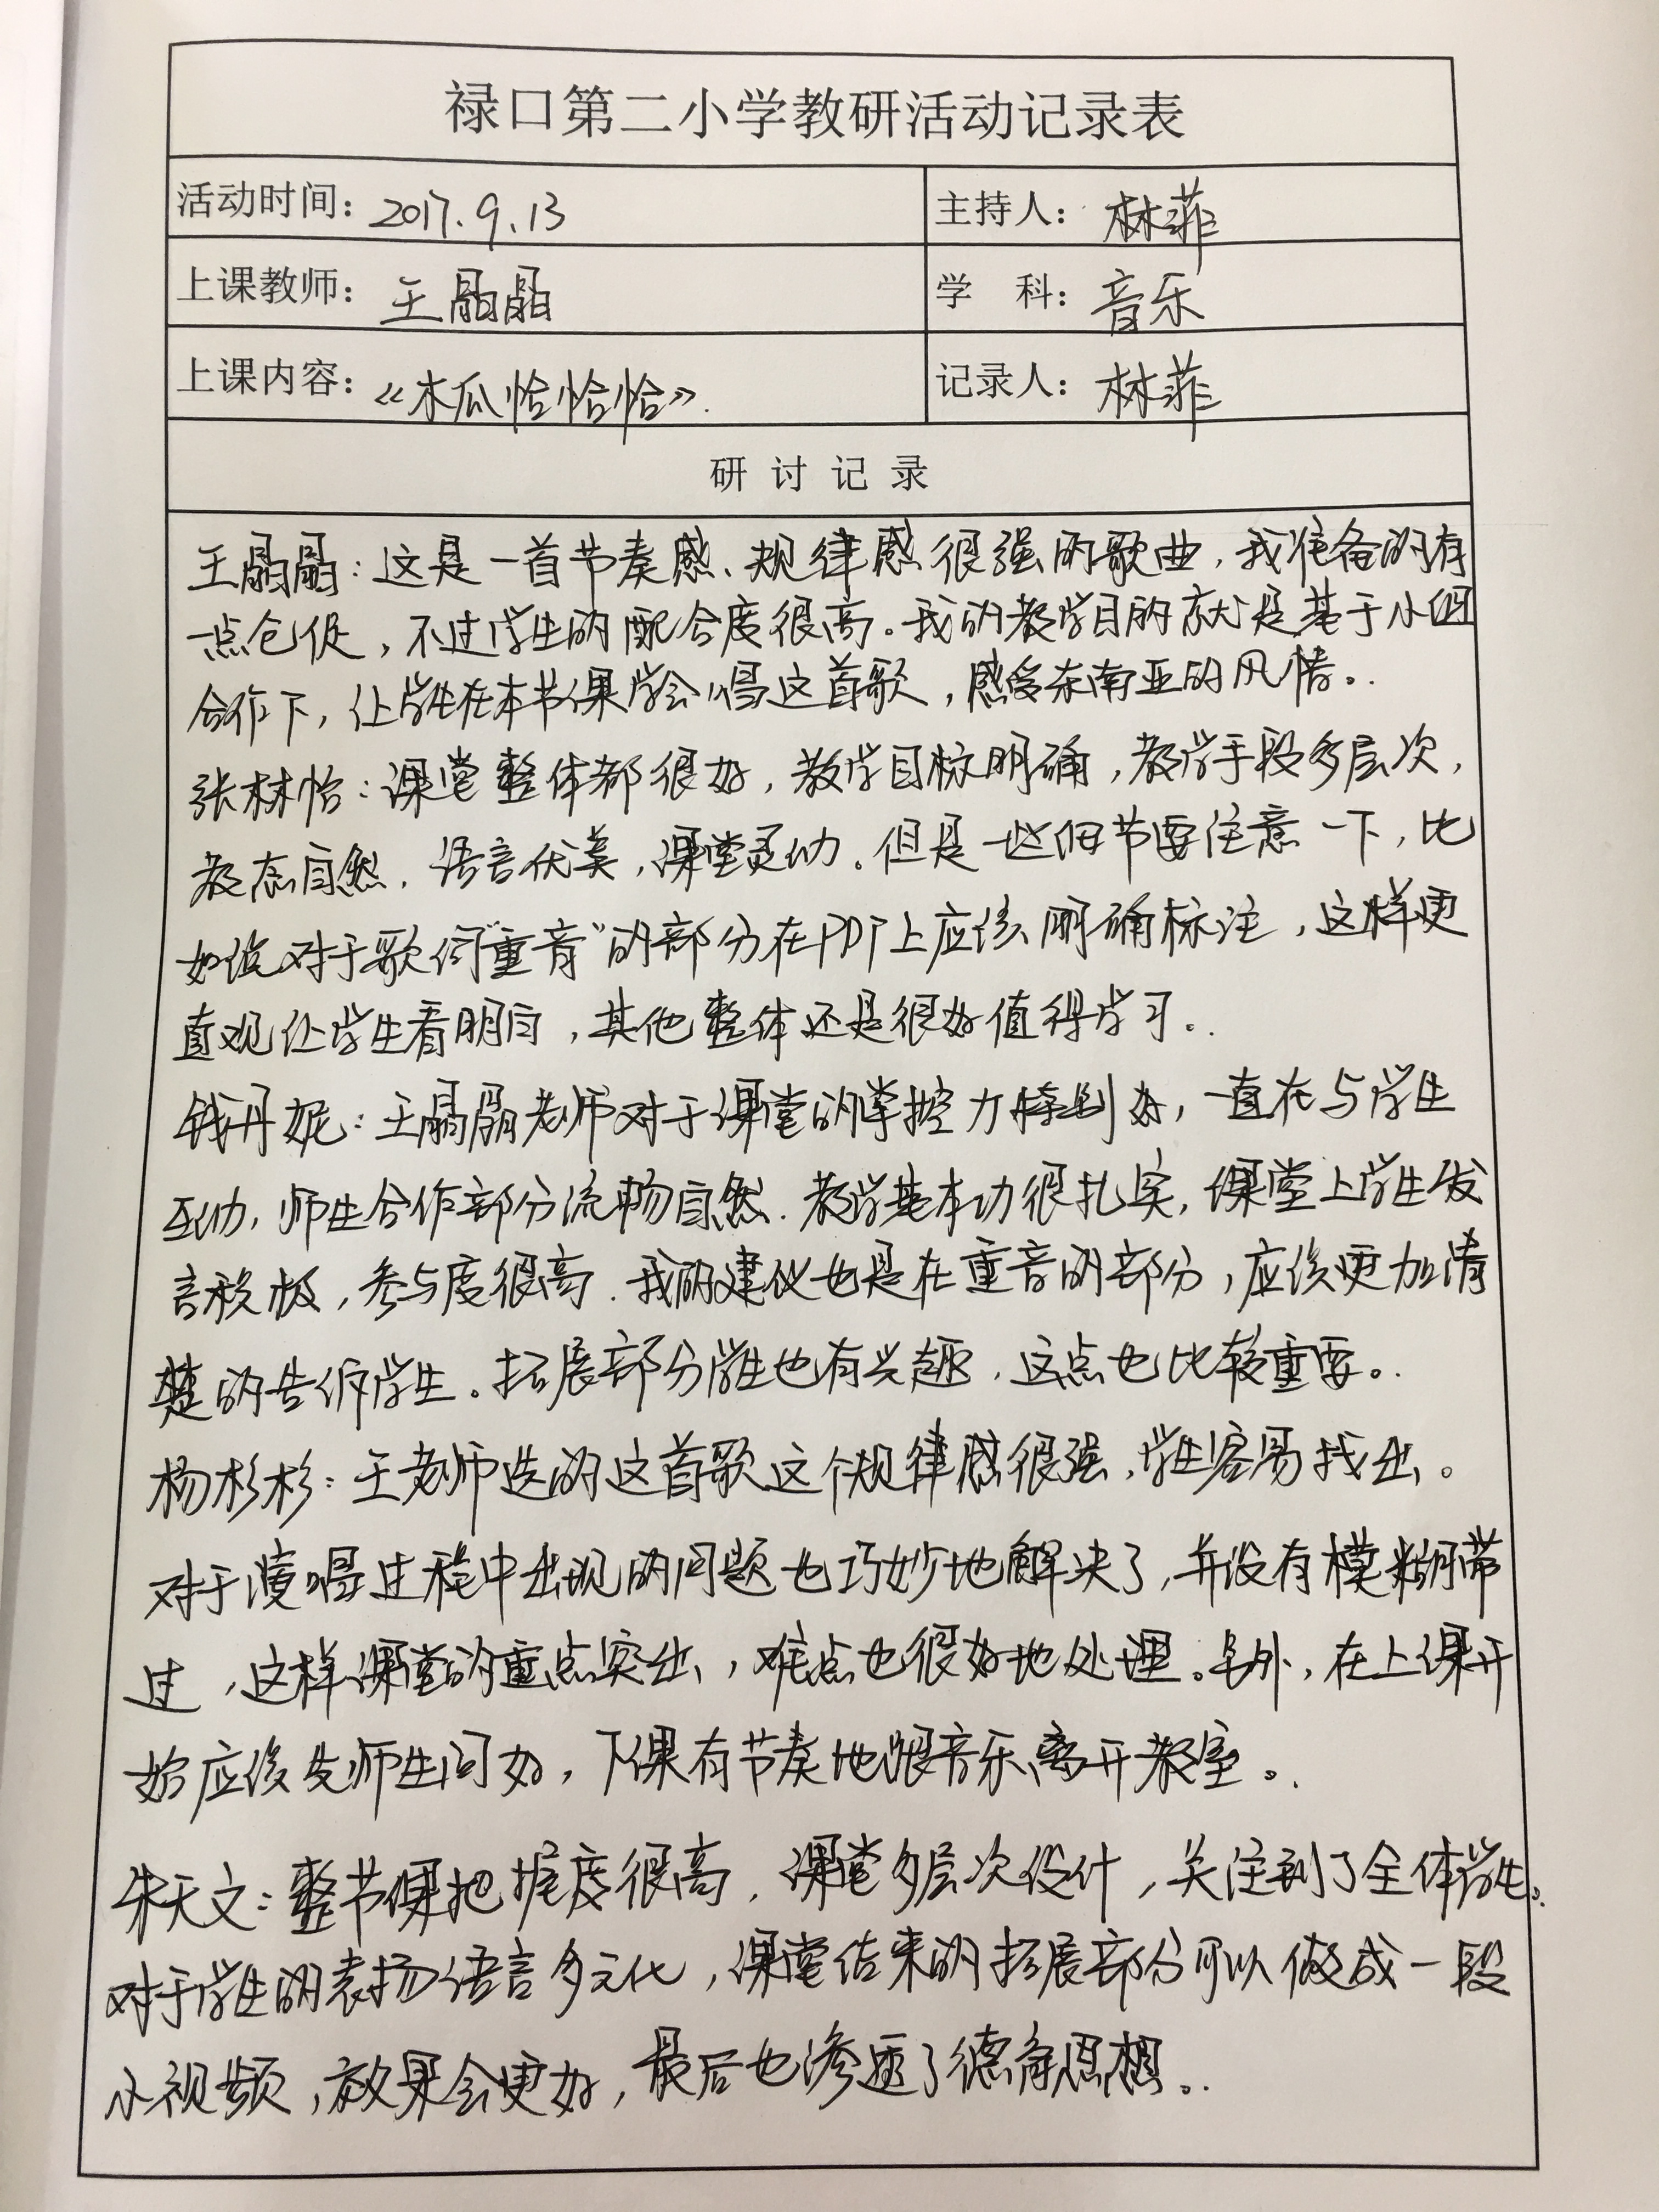 禄口第二小学教研活动记录表
活动时间：2017.9.13
主持人：林菲
上课教师：王晶晶
学 科：音乐
上课内容：《木瓜恰恰恰》.
记录人：林菲
研讨记录
王晶晶：这是一首节奏感、规律感很强的歌曲，我准备的有
一点仓促，不过学生的配合度很高。我的教学目的就是基于小组
合作下，让学生在本节课学会唱这首歌，感受东南亚的风情。
张林怡：课堂整体都很好，教学目标明确，教学手段多层次，
教态自然，语言优美，课堂灵动。但是一些细节要注意一下，比
如该对于歌词“重音”的部分在PPT上应该明确标注，这样更
直观让学生看明白，其他整体还是很好值得学习。
钱丹妮：王晶晶老师对于课堂的掌控力特别好，一直在与学生
互动，师生合作部分流畅自然。教学基本功很扎实，课堂上学生发
言积极，参与度很高。我的建议也是在重音的部分，应该更加清
楚的告诉学生。拓展部分学生也有兴趣，这点也比较重要。
杨杉杉：王老师选的这首歌这个规律感很强，学生容易找出。
对于演唱过程中出现的问题也巧妙地解决了，并没有模糊带
过，这样课堂的重点突出，难点也很好地处理。另外，在上课开
始应该先师生问好，下课有节奏地跟音乐离开教室。
朱天文：整节课把握度很高，课堂多层次设计，关注到了全体学生。
对于学生的表扬语言多元化，课堂结束的拓展部分可以做成一段
小视频，效果会更好，最后也渗透了德育思想。